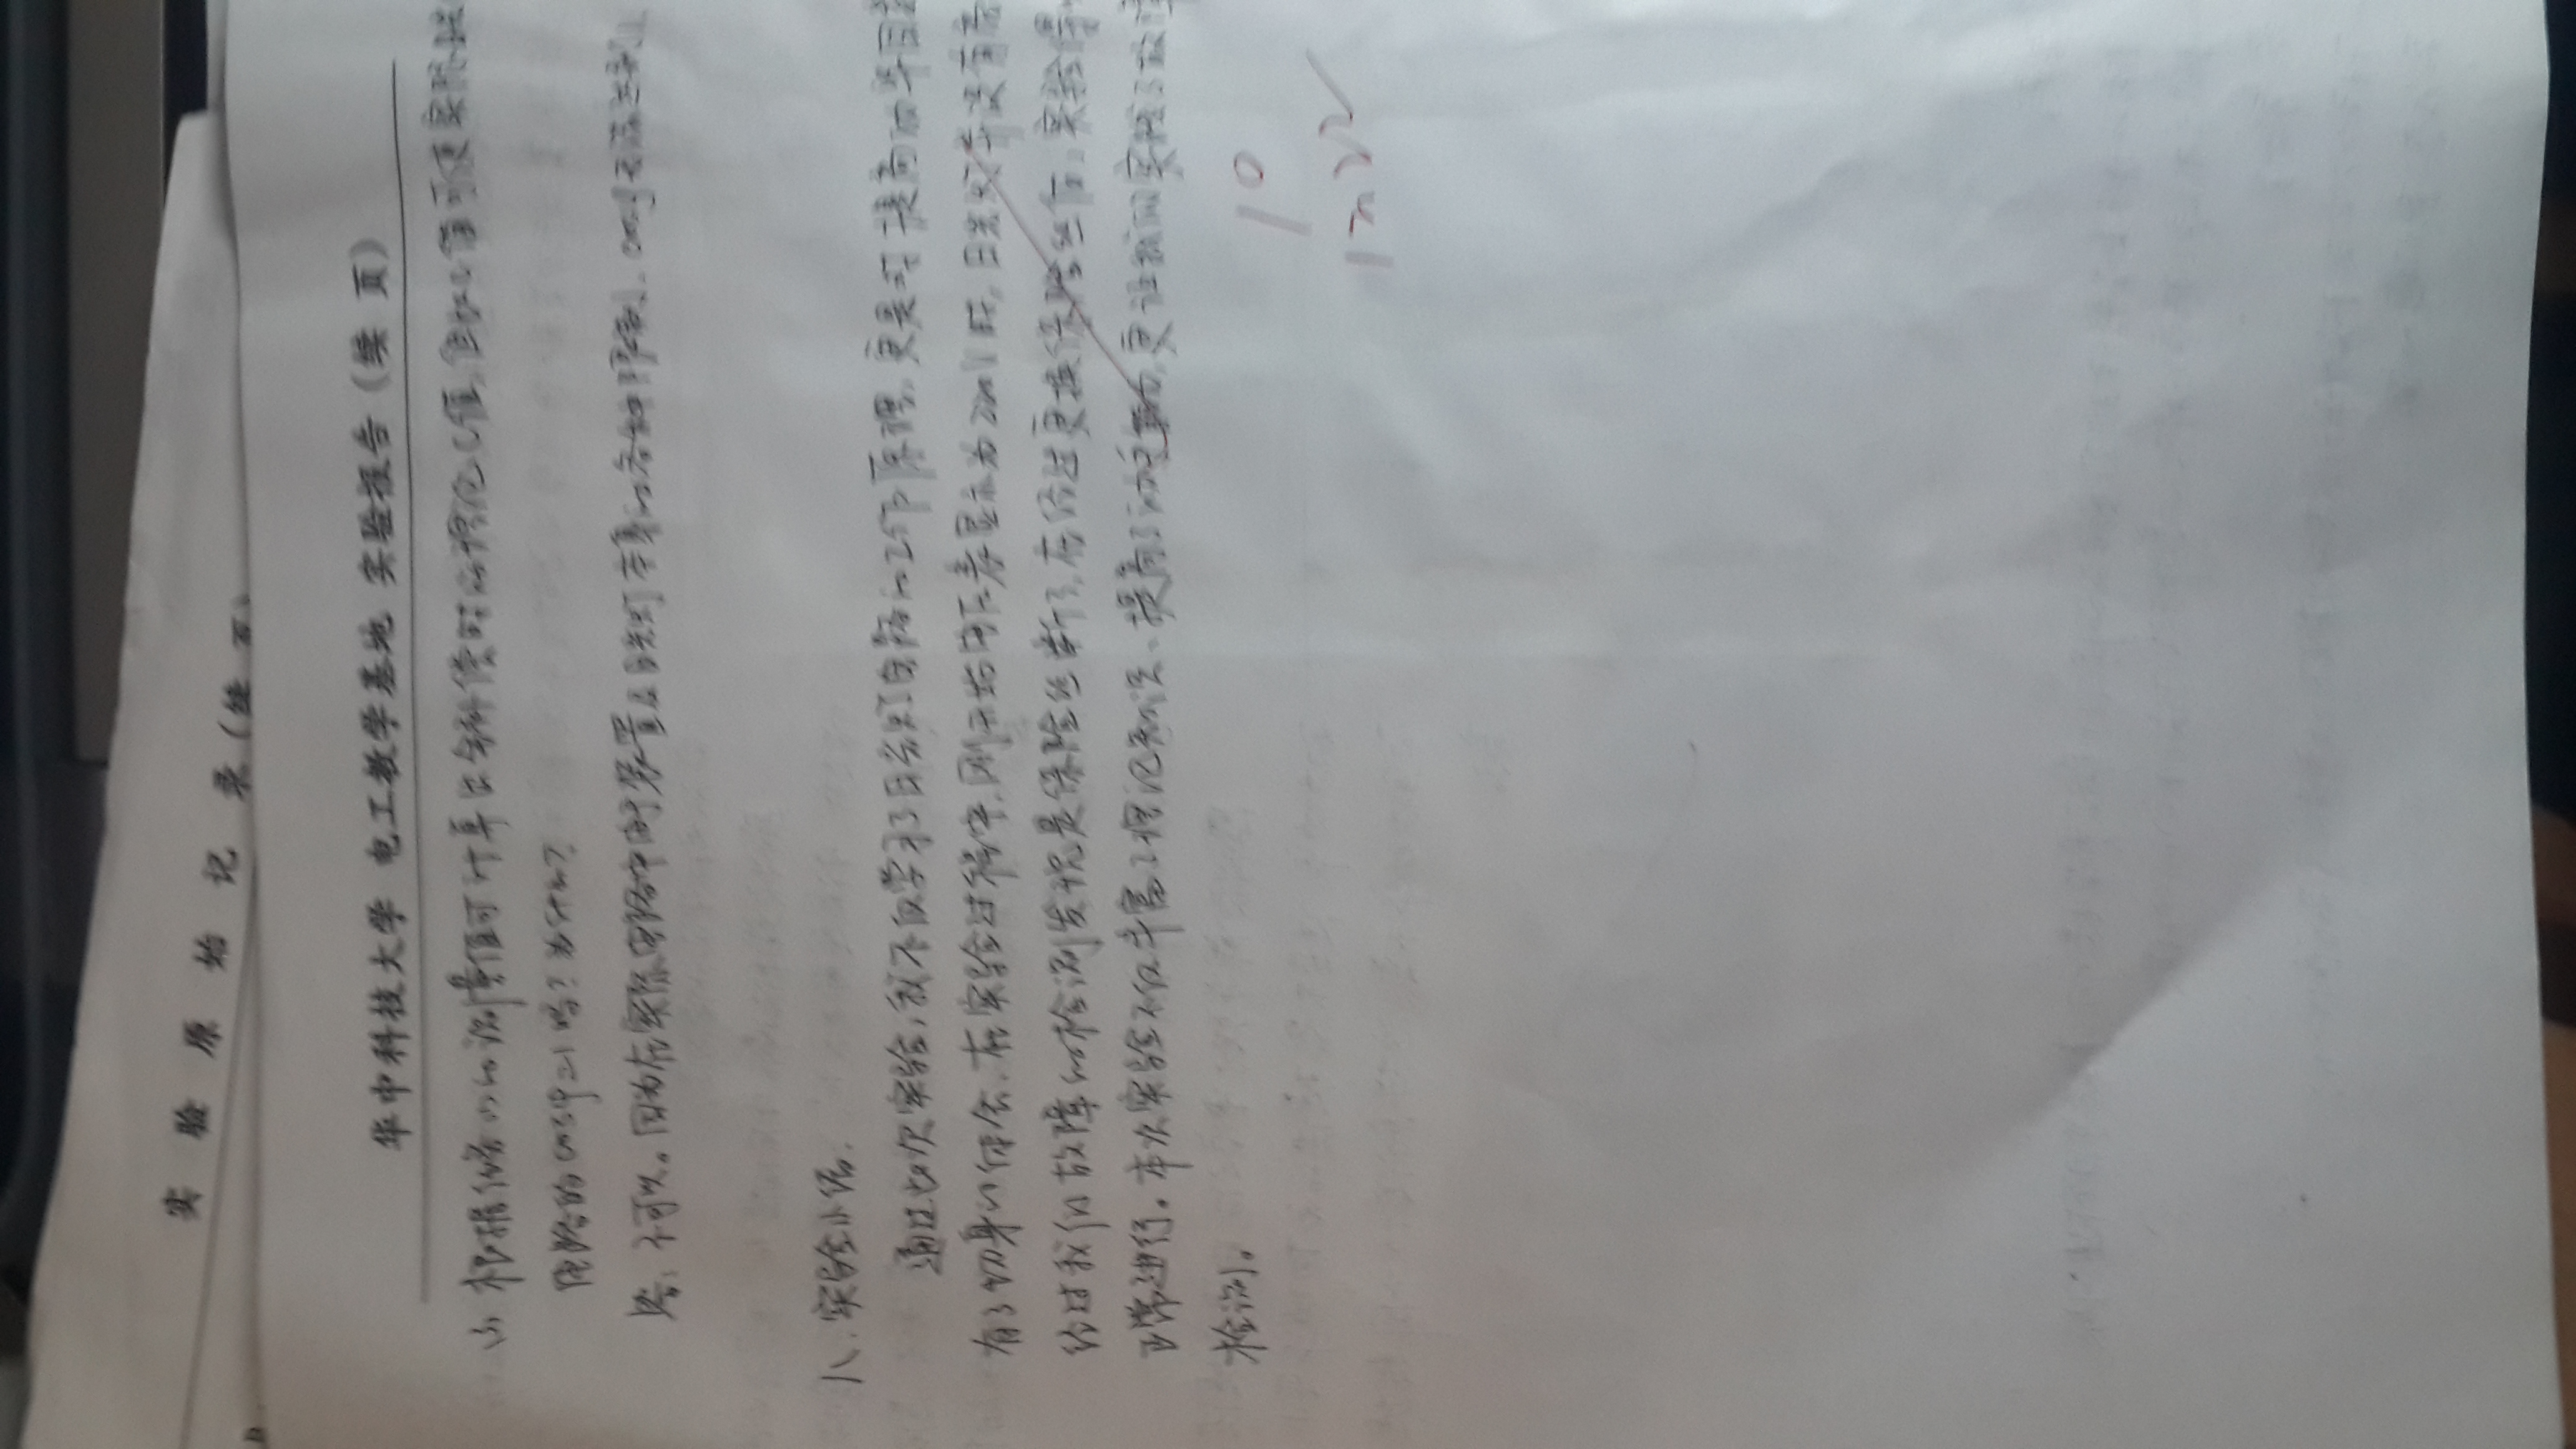 实验原始记录(续页)
华中科技大学 电工教学基地 实验报告(续 页)
根据任务的测量值可计算出全补偿时的理论C值,但此C值可使实际
电路的cosφ=1吗?为什么?
答:不可以。因为在实际电路中由于装置及日光灯本身的各种
八.实验小结.
通过此次实验,我不仅学习了日光灯电路的工作原理,更是对提高的
有了切身的体会.在实验过程中,刚开始电压表显示为220V时,日光灯并没有
经过我们故障的检测发现是保险丝断了,在经过更换保险丝后,实验得
正常进行。本次实验不仅丰富了理论知识、提高了动手能力,更让我们实践了故障
检测。
10